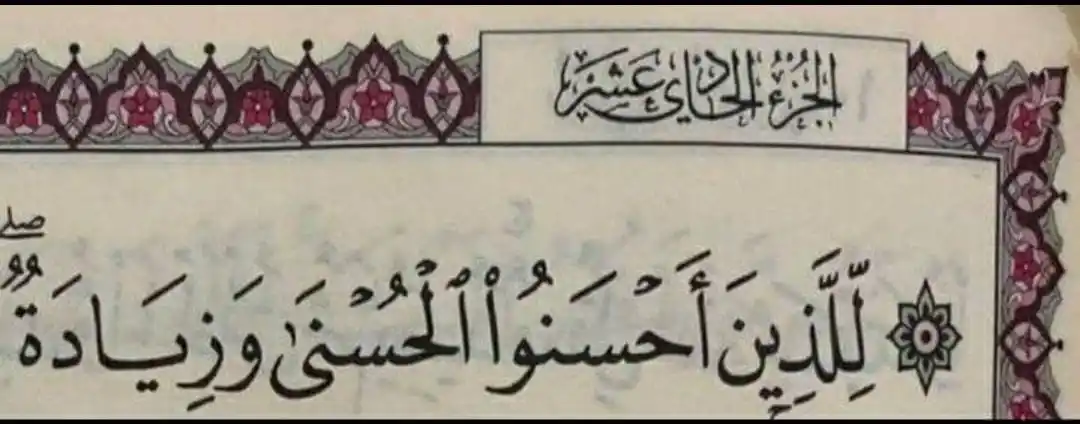 الجُزْءُ الحَادِي عَشَرَ
صلے
۞ لِّلَّذِينَ أَحْسَنُوا۟ ٱلْحُسْنَىٰ وَزِيَادَةٌ